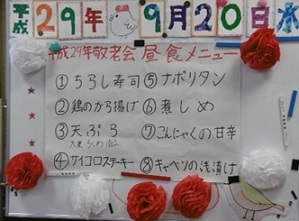 平成29年9月20日水
平成29年敬老会 昼食メニュー
①ちらし寿司
②鶏のから揚げ
③天ぷら
④サイコロステーキ
⑤ナポリタン
⑥煮しめ
⑦こんにゃくの甘辛
⑧キャベツの浅漬け